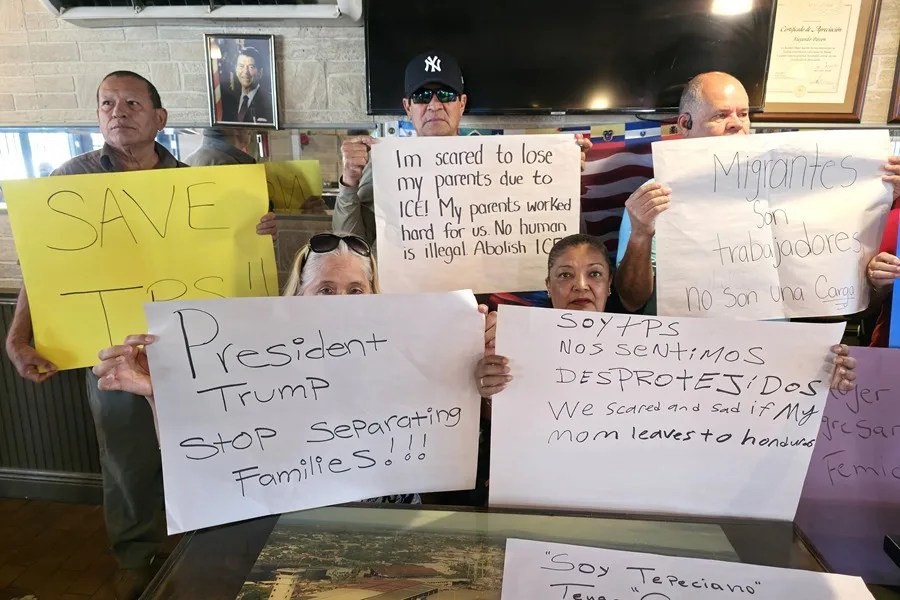 Certificado de Apreciación
SAVE
TPS"
Im scared to lose
my parents due to
ICE! My parents worked
hard for us. No human
is illegal. Abolish ICE
Migrantes
son
trabajadores
no son una Carga
President
Trump
Stop Separating
Families!!!
SOY TPS
NOS SENTIMOS
DESPROTEJIDOS
We scared and sad if My
mom leaves to honduras
"Soy Tepeciano"